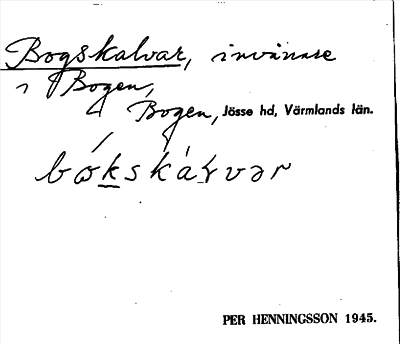 Bogskalvar, invånare
i Bogen,
Bogen, Jösse hd, Värmlands län.
bókskálvər
PER HENNINGSSON 1945.